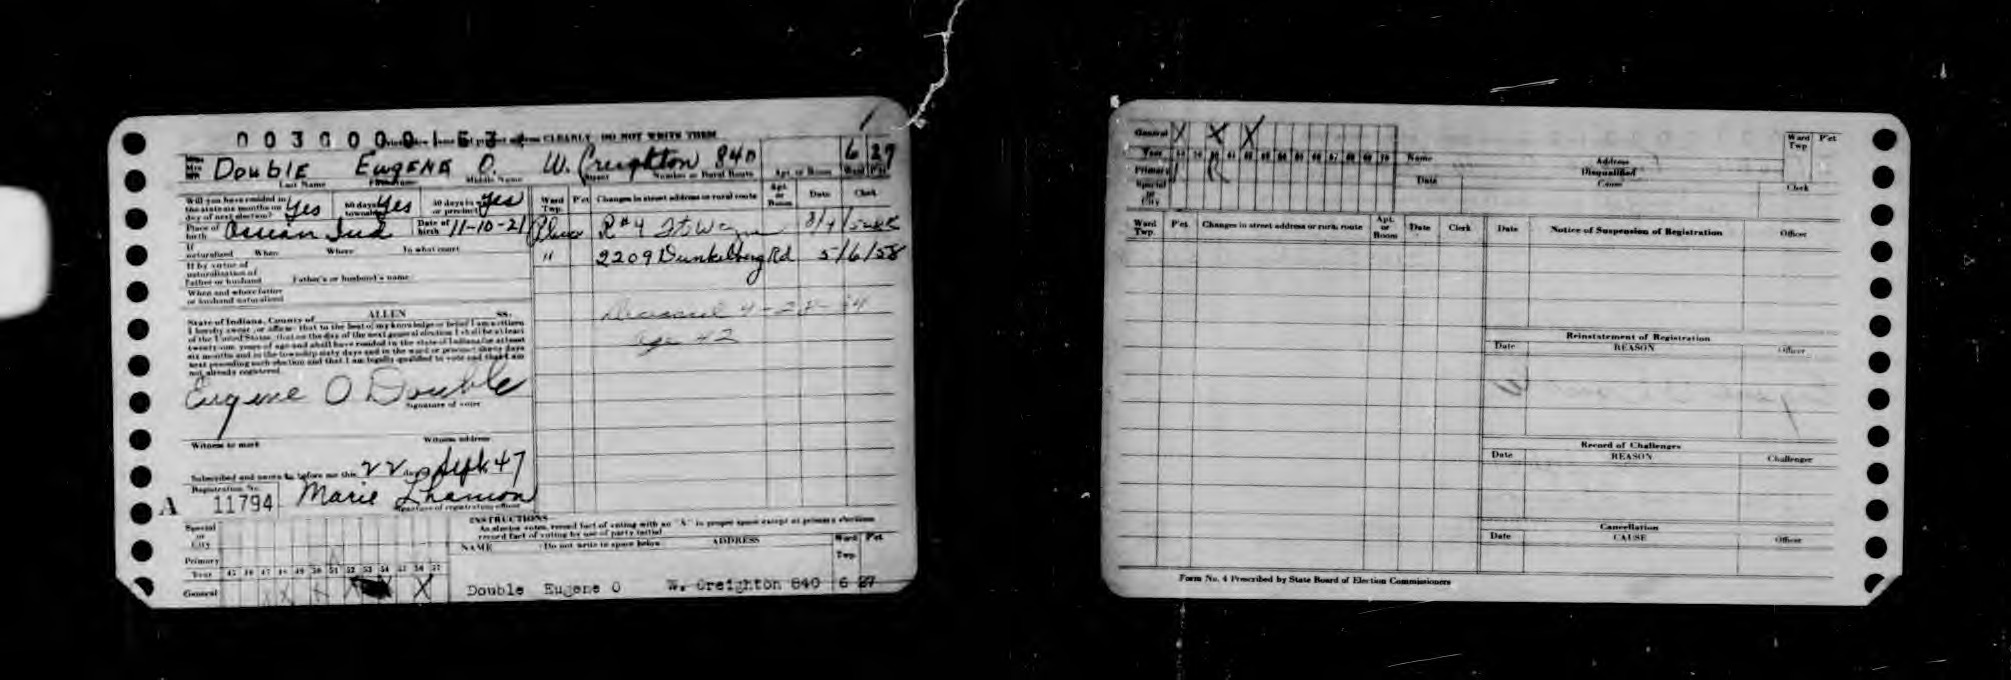 CLEARLY DO NOT WRITE THEM
DOUBLE EUGENE O. W. Creighton 840 6 27
Last Name Middle Name Street Number or Rural Route Apt. or Room Ward P'ct
Will you have resided in the state six months on day of next election? Yes 60 days in township Yes 30 days in or precinct Yes
Ward Twp. P'ct Changes in street address or rural route Apt. or Room Date Clerk
Place of birth Ossian Ind Date of birth 11-10-21
R#4 Ft Wayne
If naturalized When Where In what court
" 2209 Dunkelberg Rd 5/6/58
If by virtue of naturalization of Father or husband Father's or husband's name
When and where father or husband naturalized
Deceased
age 42
State of Indiana, County of ALLEN SS.
I hereby swear, or affirm, that to the best of my knowledge or belief I am a citizen
of the United States, that on the day of the next general election I shall be at least
twenty-one years of age and shall have resided in the state of Indiana for at least
six months and in the township sixty days and in the ward or precinct thirty days
next preceding such election and that I am legally qualified to vote and that I am
not already registered
Eugene O Double
Signature of voter
Witness to mark Witness address
Subscribed and sworn to before me this 22 day Sept. 47
Registration No.
A 11794 Marie Lhamon
Signature of registration officer
INSTRUCTIONS
As elector votes, record fact of voting with an "X" in proper space except at primary elections
record fact of voting by use of party initial
NAME Do not write in space below ADDRESS Ward Twp P'ct
Special or City
Primary
Year 45 46 47 48 49 50 51 52 53 54 55 56 57
General X X X X
Double Eugene O W. Creighton 840 6 27
General X X X
Year 58 59 60 61 62 63 64 65 66 67 68 69 70
Primary R
Special or City
Name Address Ward Twp P'ct
Disqualified
Date Cause Clerk
Ward Twp. P'ct Changes in street address or rural route Apt. or Room Date Clerk
Date Notice of Suspension of Registration Officer
Reinstatement of Registration
Date REASON Officer
Record of Challenges
Date REASON Challenger
Cancellation
Date CAUSE Officer
Form No. 4 Prescribed by State Board of Election Commissioners